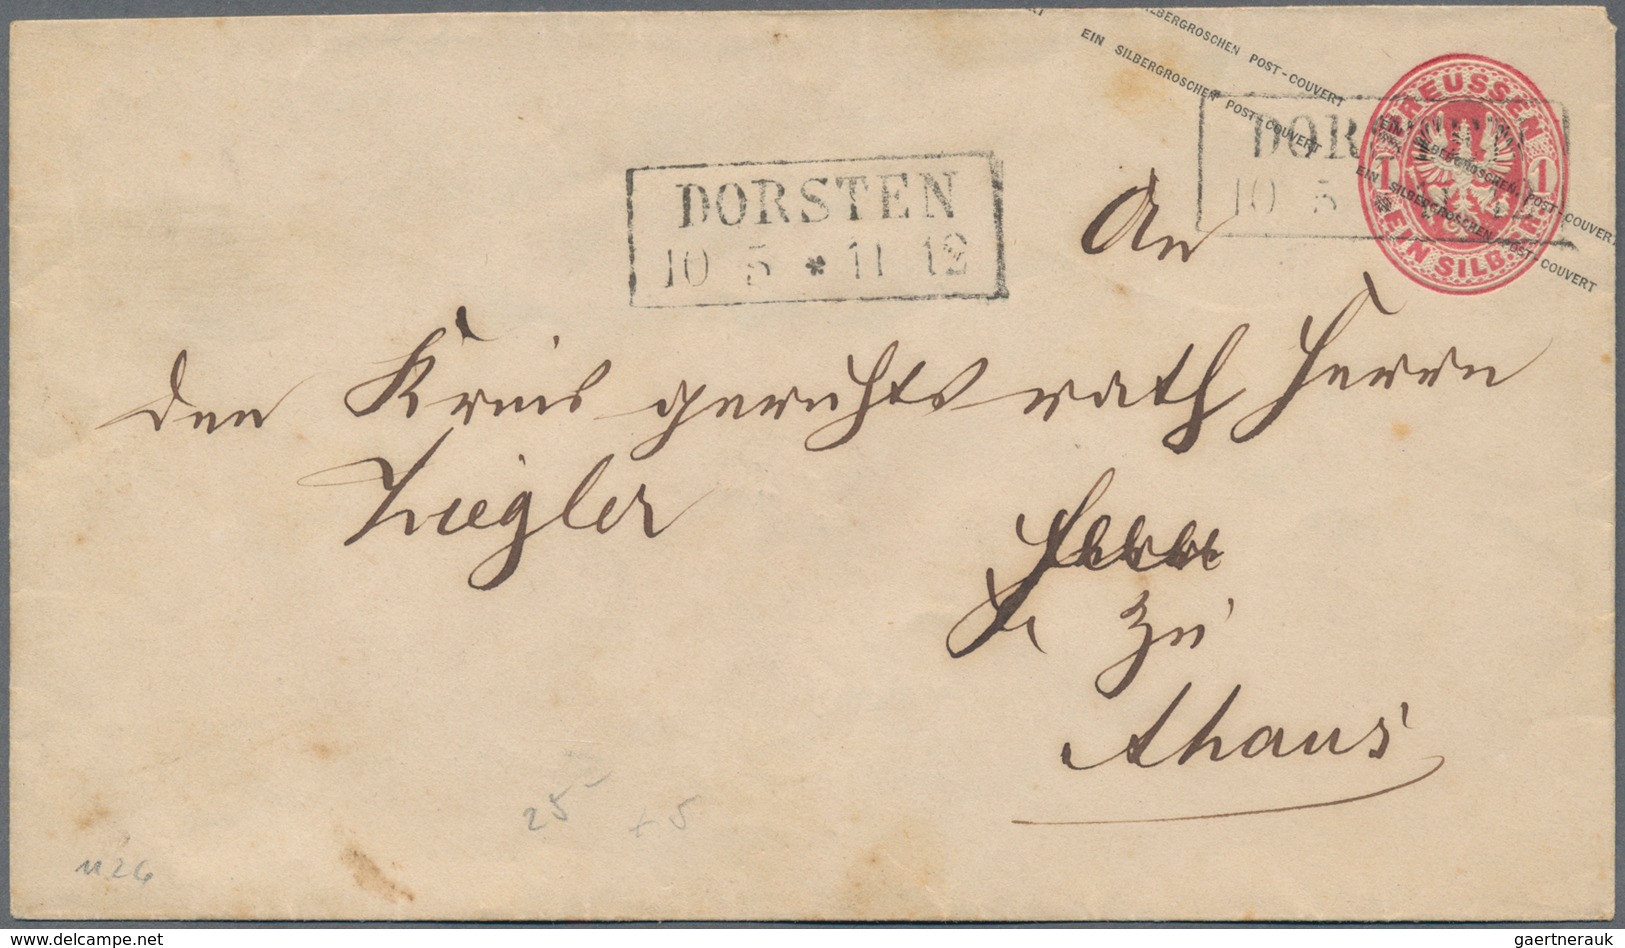 EIN SILBERGROSCHEN POST-COUVERT
EIN SILBERGROSCHEN POST-COUVERT
PREUSSEN
1 1
EIN SILB. GR.
EIN SILBERGROSCHEN POST-COUVERT
EIN SILBERGROSCHEN POST-COUVERT
DORSTEN
10 5 * 11-12
DORSTEN
10 5
An
den Kreisgerichtsrath Herrn
Ziegler
zu
Ahaus
25- +5
1126
www.delcampe.net
gaertnerauk